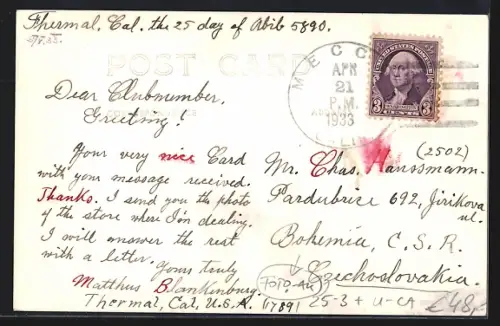 Thermal, Cal. the 25 day of Abib 5890.
POST CARD
Dear Clubmember,
Greeting!
Your very nice Card
with your message received.
Thanks. I send you the photo
of the store where I'm dealing.
I will answer the rest
with a letter.
Yours truly
Matthus Blankenburg.
Thermal, Cal, U.S.A.
17891
MECC
APR
21
P.M.
1933
UNITED STATES POSTAGE
WASHINGTON
3 CENTS 3
(2502)
Mr. Chas. Haussmann.
Pardubice 692, Jirikova
ul.
Bohemia, C. S. R.
Czechoslovakia.
25-3 + U-CA
£48,-